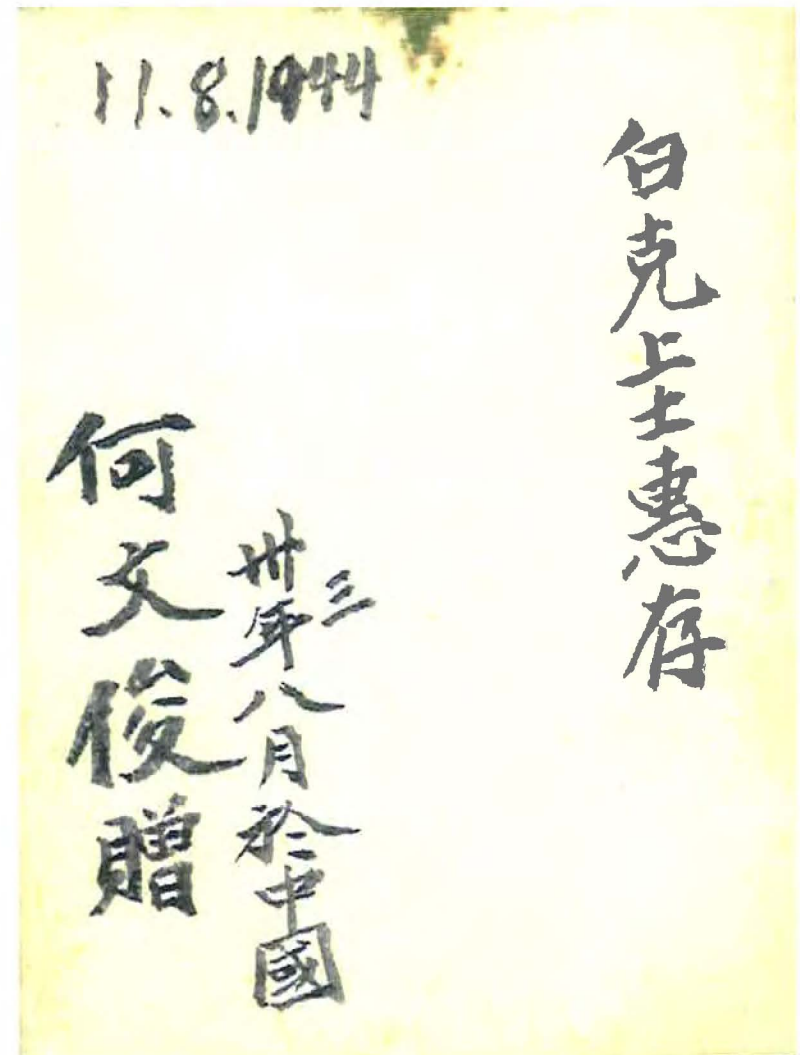 11.8.1944
白克上士惠存
卅三年八月於中國
何文俊贈